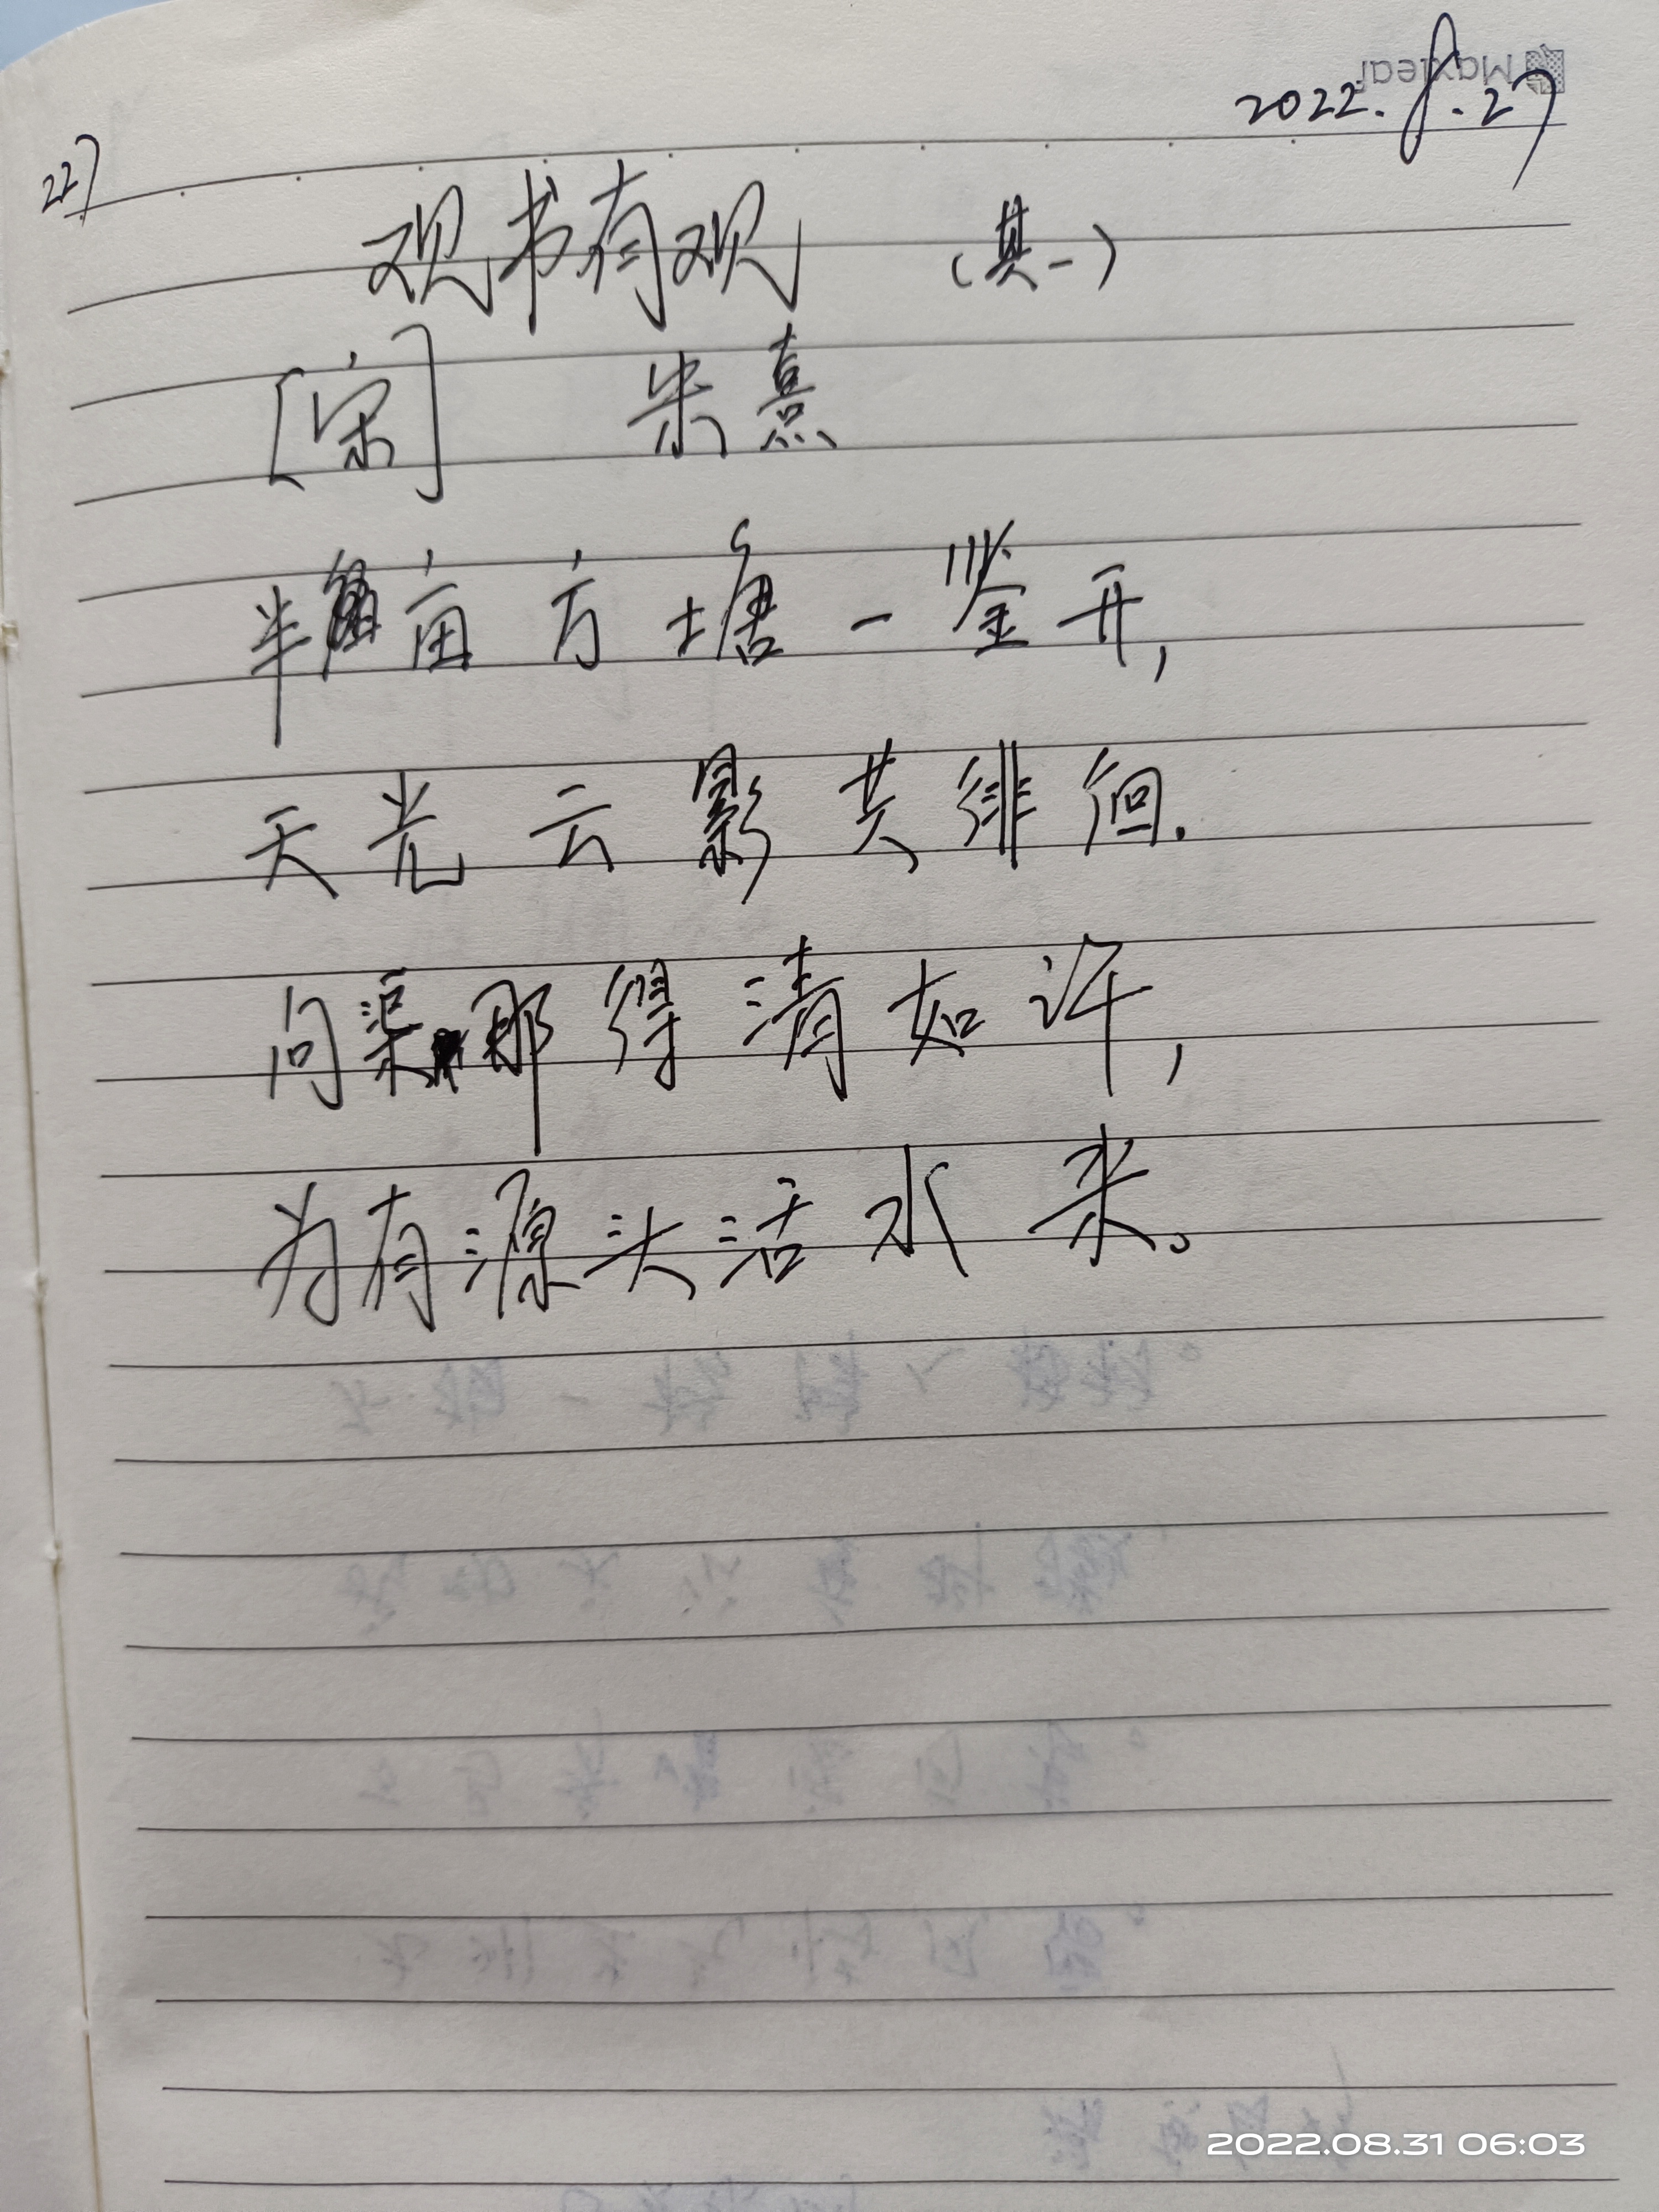 Maxleaf
2022.8.27
227
观书有观 （其一）
[宋] 朱熹
半亩方塘一鉴开，
天光云影共徘徊.
问渠那得清如许，
为有源头活水来。
2022.08.31 06:03